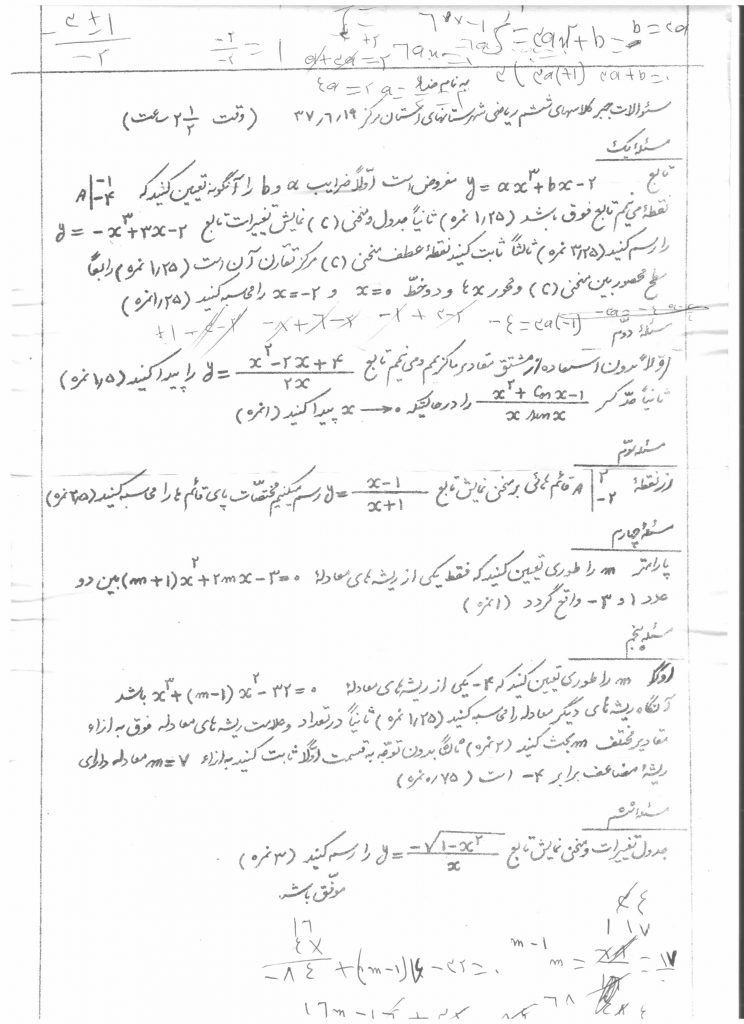 b = ۳a
= ۳ax² + b = ۰
-۲/-۲ = ۱
a + ۳a = ۲
۳a + b = ۰
به نام خدا
سئوالات جبر کلاسهای ششم ریاضی شهرستانهای استان مرکز ۳۷٫۶٫۱۹ (وقت ۲ ۱/۲ ساعت)
مسئله یک
تابع y = ax³ + bx - ۲ مفروض است اولاً ضرایب a و b را آنگونه تعیین کنید که A |-۱ -۴
نقطهٔ می نیمم تابع فوق باشد (۱٫۲۵ نمره) ثانیاً جدول و منحنی (C) نمایش تغییرات تابع y = -x³ + ۳x - ۲
را رسم کنید (۳٫۲۵ نمره) ثالثاً ثابت کنید نقطهٔ عطف منحنی (C) مرکز تقارن آن است (۱٫۲۵ نمره) رابعاً
سطح محصور بین منحنی (C) و محور xها و دو خط x = ۰ و x = -۲ را محاسبه کنید (۱٫۲۵ نمره)
مسئله دوم
اولاً بدون استفاده از مشتق مقادیر ماکزیمم و می نیمم تابع y = (x² - ۲x + ۴)/۲x را پیدا کنید (۱٫۵ نمره)
ثانیاً حد کسر (x² + Cos x - ۱)/(x sin x) را در حالتیکه x → ۰ پیدا کنید (۱ نمره)
مسئله سوم
از نقطهٔ A |۲ -۲ قائم هائی بر منحنی نمایش تابع y = (x - ۱)/(x + ۱) رسم میکنیم مختصات پای قائم ها را محاسبه کنید (۲٫۵ نمره)
مسئله چهارم
پارامتر m را طوری تعیین کنید که فقط یکی از ریشه های معادلهٔ (m+۱)x² + ۲mx - ۳ = ۰ بین دو
عدد ۱ و ۳- واقع گردد (۱ نمره)
مسئله پنجم
اولاً m را طوری تعیین کنید که ۴- یکی از ریشه های معادلهٔ x³ + (m-۱)x² - ۳۲ = ۰ باشد
آنگاه ریشه های دیگر معادله را محاسبه کنید (۱٫۲۵ نمره) ثانیاً در تعداد و علامت ریشه های معادله فوق به ازاء
مقادیر مختلف m بحث کنید (۲ نمره) ثالثاً بدون توجه به قسمت اولاً ثابت کنید به ازاء m = ۷ معادله دارای
ریشهٔ مضاعف برابر ۴- است (۰٫۷۵ نمره)
مسئله ششم
جدول تغییرات و منحنی نمایش تابع y = -√(۱-x²)/x را رسم کنید (۳ نمره)
موفق باشید
m-۱